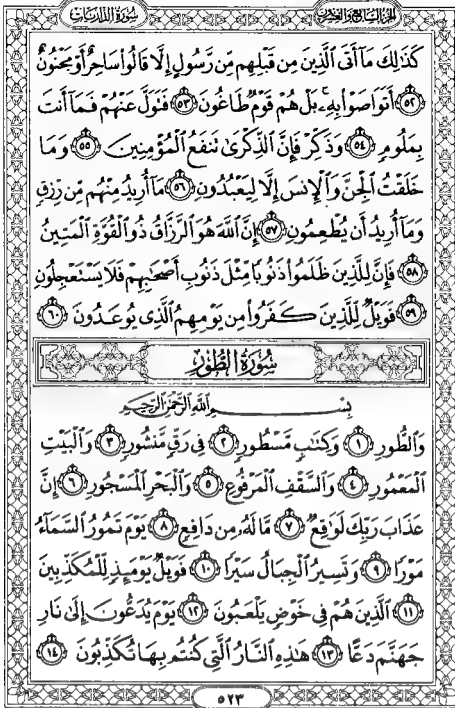 الجزء السابع والعشرون سورة الذاريات
كَذَٰلِكَ مَآ أَتَى ٱلَّذِينَ مِن قَبْلِهِم مِّن رَّسُولٍ إِلَّا قَالُوا۟ سَاحِرٌ أَوْ مَجْنُونٌ
﴿٥٢﴾ أَتَوَاصَوْا۟ بِهِۦ ۚ بَلْ هُمْ قَوْمٌ طَاغُونَ ﴿٥٣﴾ فَتَوَلَّ عَنْهُمْ فَمَآ أَنتَ
بِمَلُومٍ ﴿٥٤﴾ وَذَكِّرْ فَإِنَّ ٱلذِّكْرَىٰ تَنفَعُ ٱلْمُؤْمِنِينَ ﴿٥٥﴾ وَمَا
خَلَقْتُ ٱلْجِنَّ وَٱلْإِنسَ إِلَّا لِيَعْبُدُونِ ﴿٥٦﴾ مَآ أُرِيدُ مِنْهُم مِّن رِّزْقٍ
وَمَآ أُرِيدُ أَن يُطْعِمُونِ ﴿٥٧﴾ إِنَّ ٱللَّهَ هُوَ ٱلرَّزَّاقُ ذُو ٱلْقُوَّةِ ٱلْمَتِينُ
﴿٥٨﴾ فَإِنَّ لِلَّذِينَ ظَلَمُوا۟ ذَنُوبًا مِّثْلَ ذَنُوبِ أَصْحَٰبِهِمْ فَلَا يَسْتَعْجِلُونِ
﴿٥٩﴾ فَوَيْلٌ لِّلَّذِينَ كَفَرُوا۟ مِن يَوْمِهِمُ ٱلَّذِى يُوعَدُونَ ﴿٦٠﴾
سُورَةُ الطُّورِ
بِسْمِ ٱللَّهِ ٱلرَّحْمَٰنِ ٱلرَّحِيمِ
وَٱلطُّورِ ﴿١﴾ وَكِتَٰبٍ مَّسْطُورٍ ﴿٢﴾ فِى رَقٍّ مَّنشُورٍ ﴿٣﴾ وَٱلْبَيْتِ
ٱلْمَعْمُورِ ﴿٤﴾ وَٱلسَّقْفِ ٱلْمَرْفُوعِ ﴿٥﴾ وَٱلْبَحْرِ ٱلْمَسْجُورِ ﴿٦﴾ إِنَّ
عَذَابَ رَبِّكَ لَوَٰقِعٌ ﴿٧﴾ مَّا لَهُۥ مِن دَافِعٍ ﴿٨﴾ يَوْمَ تَمُورُ ٱلسَّمَآءُ
مَوْرًا ﴿٩﴾ وَتَسِيرُ ٱلْجِبَالُ سَيْرًا ﴿١٠﴾ فَوَيْلٌ يَوْمَئِذٍ لِّلْمُكَذِّبِينَ
﴿١١﴾ ٱلَّذِينَ هُمْ فِى خَوْضٍ يَلْعَبُونَ ﴿١٢﴾ يَوْمَ يُدَعُّونَ إِلَىٰ نَارِ
جَهَنَّمَ دَعًّا ﴿١٣﴾ هَٰذِهِ ٱلنَّارُ ٱلَّتِى كُنتُم بِهَا تُكَذِّبُونَ ﴿١٤﴾
٥٢٣